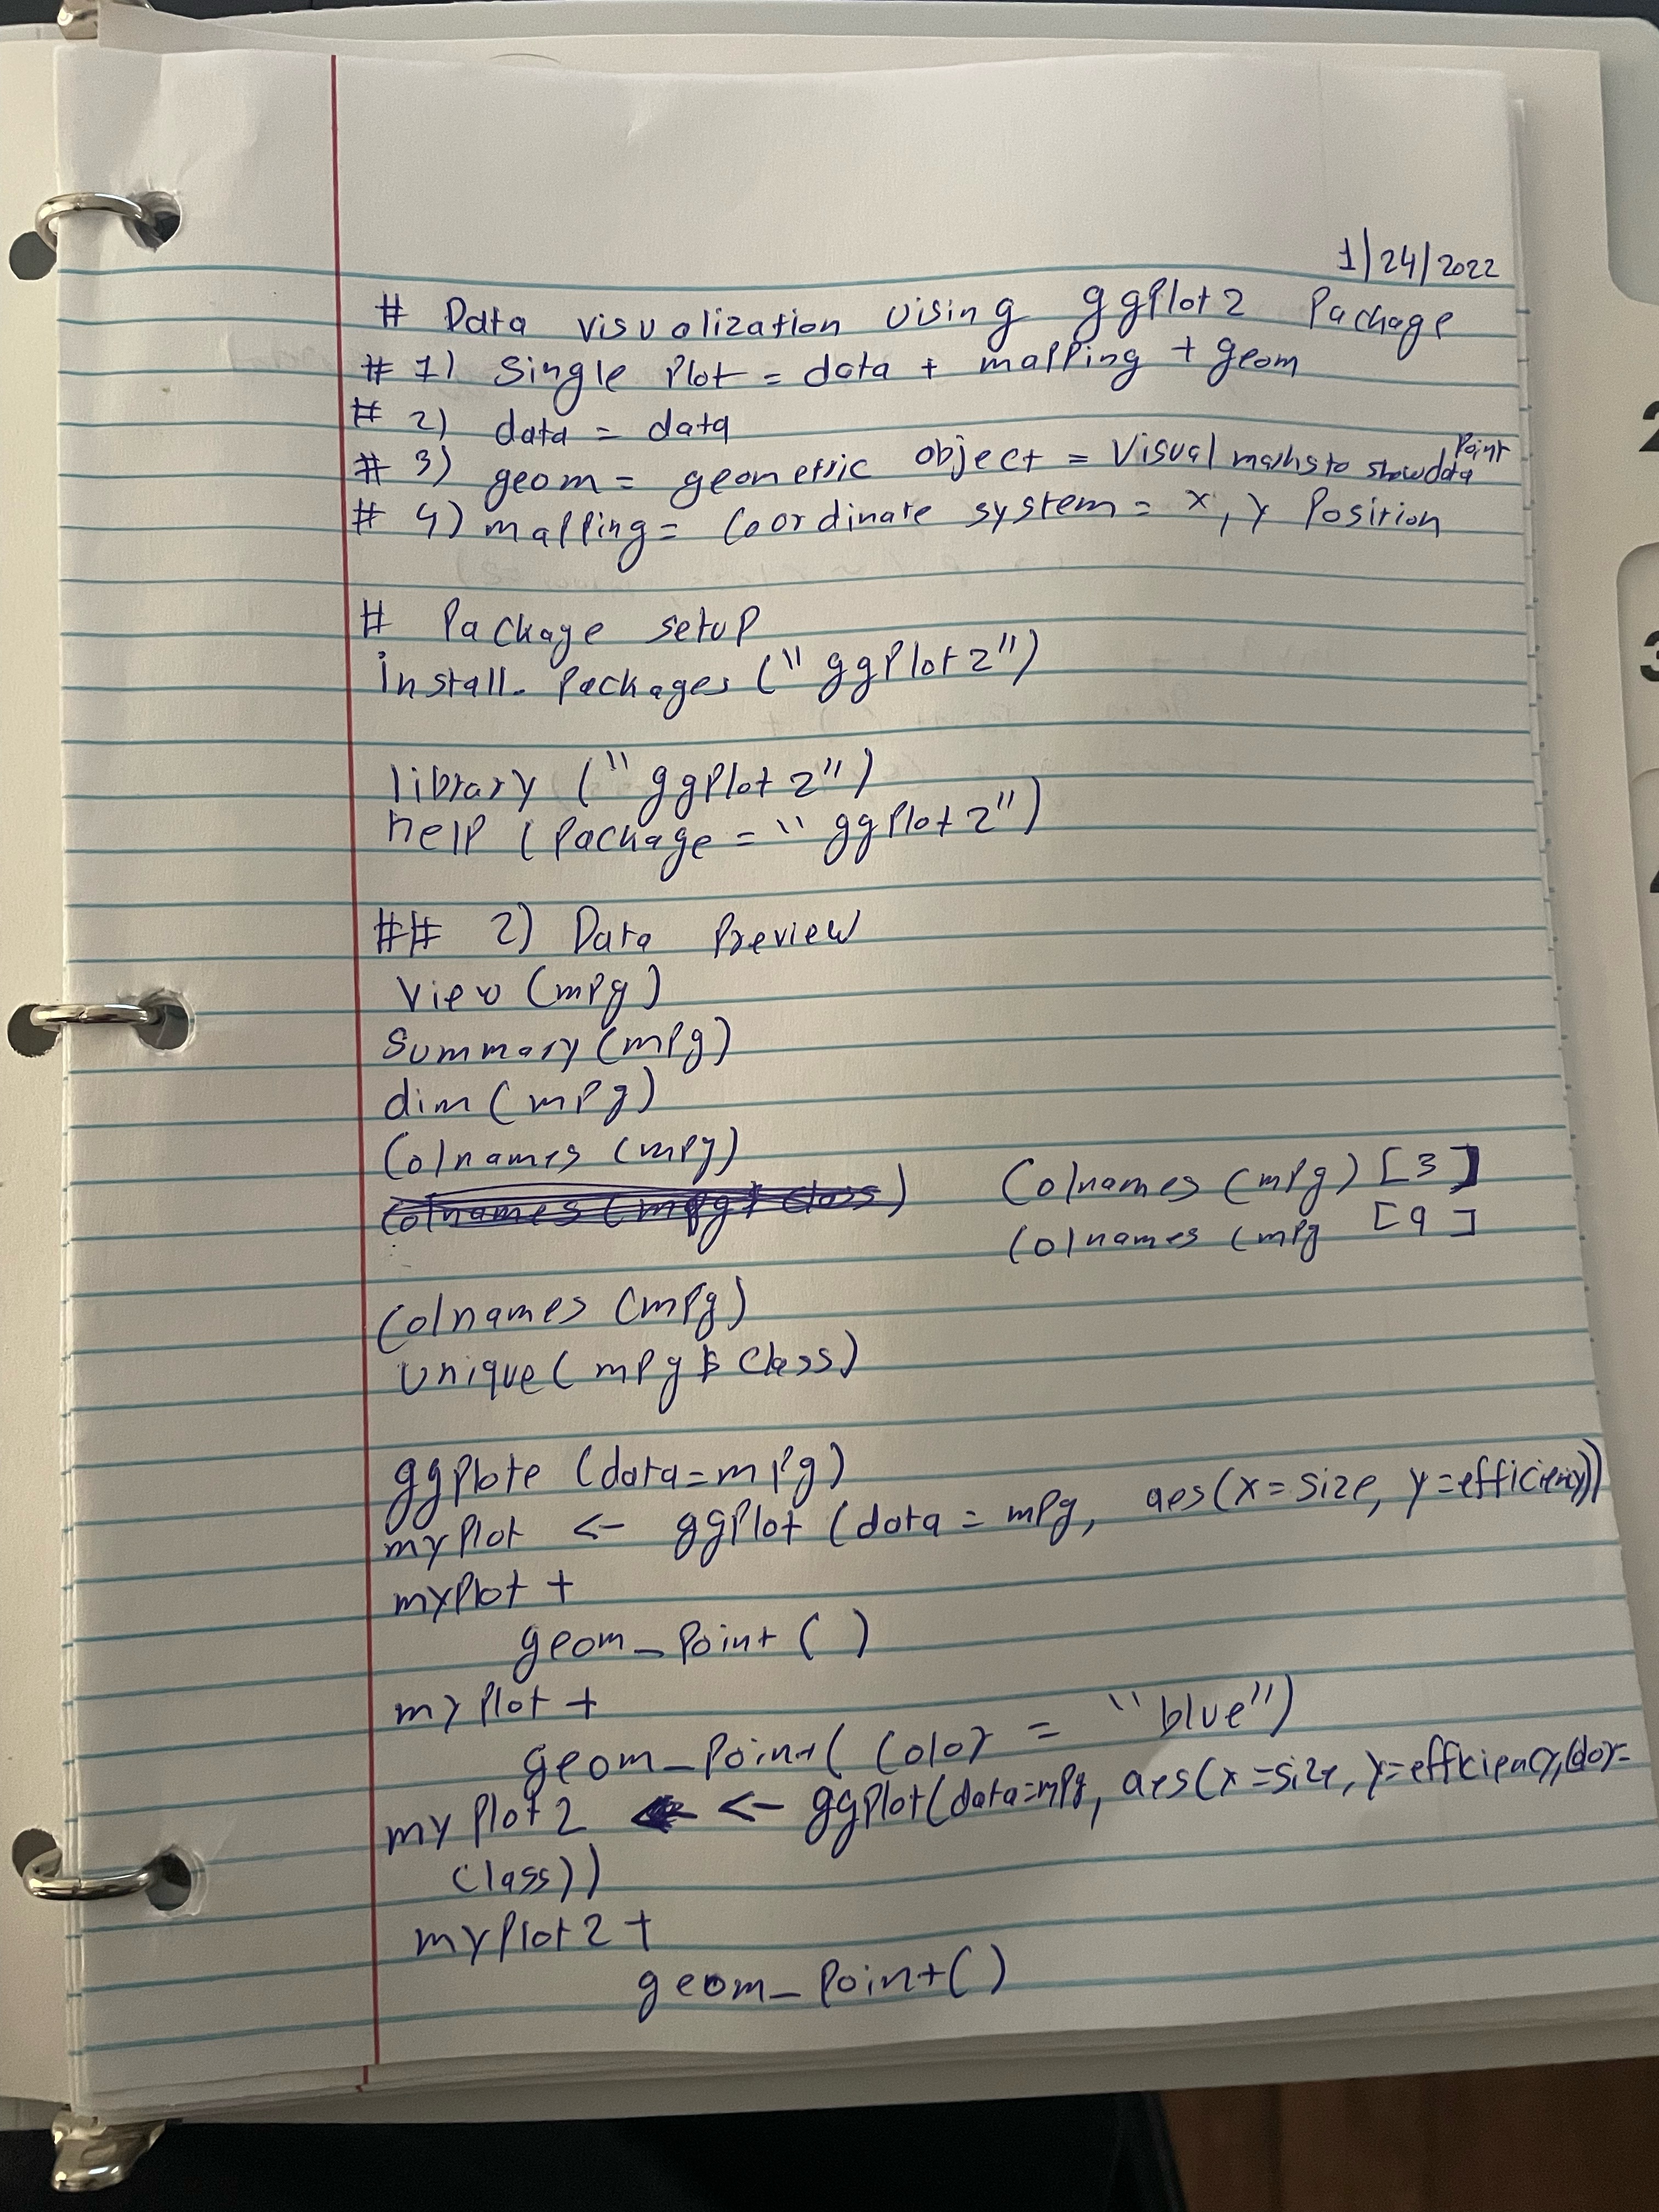 1/24/2022
# Data visualization Uising ggplot2 Package
# 1) Single Plot = data + mapping + geom
# 2) data = data
# 3) geom = geometric object = Visual marks to show data Point
# 4) mapping = Coordinate system = x, y Position
# Package setup
install. Packages ("ggPlot2")
library ("ggPlot2")
help (Package = "ggPlot2")
## 2) Data Preview
View (mpg)
Summary (mpg)
dim (mpg)
Colnames (mpg)
Colnames (mpg $ class) Colnames (mpg) [3]
Colnames (mpg [9]
Colnames (mpg)
Unique (mpg $ Class)
ggPlote (data=mpg)
myPlot <- ggPlot (data = mpg, aes(x=size, y=efficiency))
myPlot +
geom_Point ( )
myPlot +
geom_Point( Color = "blue")
myPlot2 <- ggPlot(data=mpg, aes(x=size, y=efficiency, Color=
Class))
myPlot2 +
geom_Point()
2
3